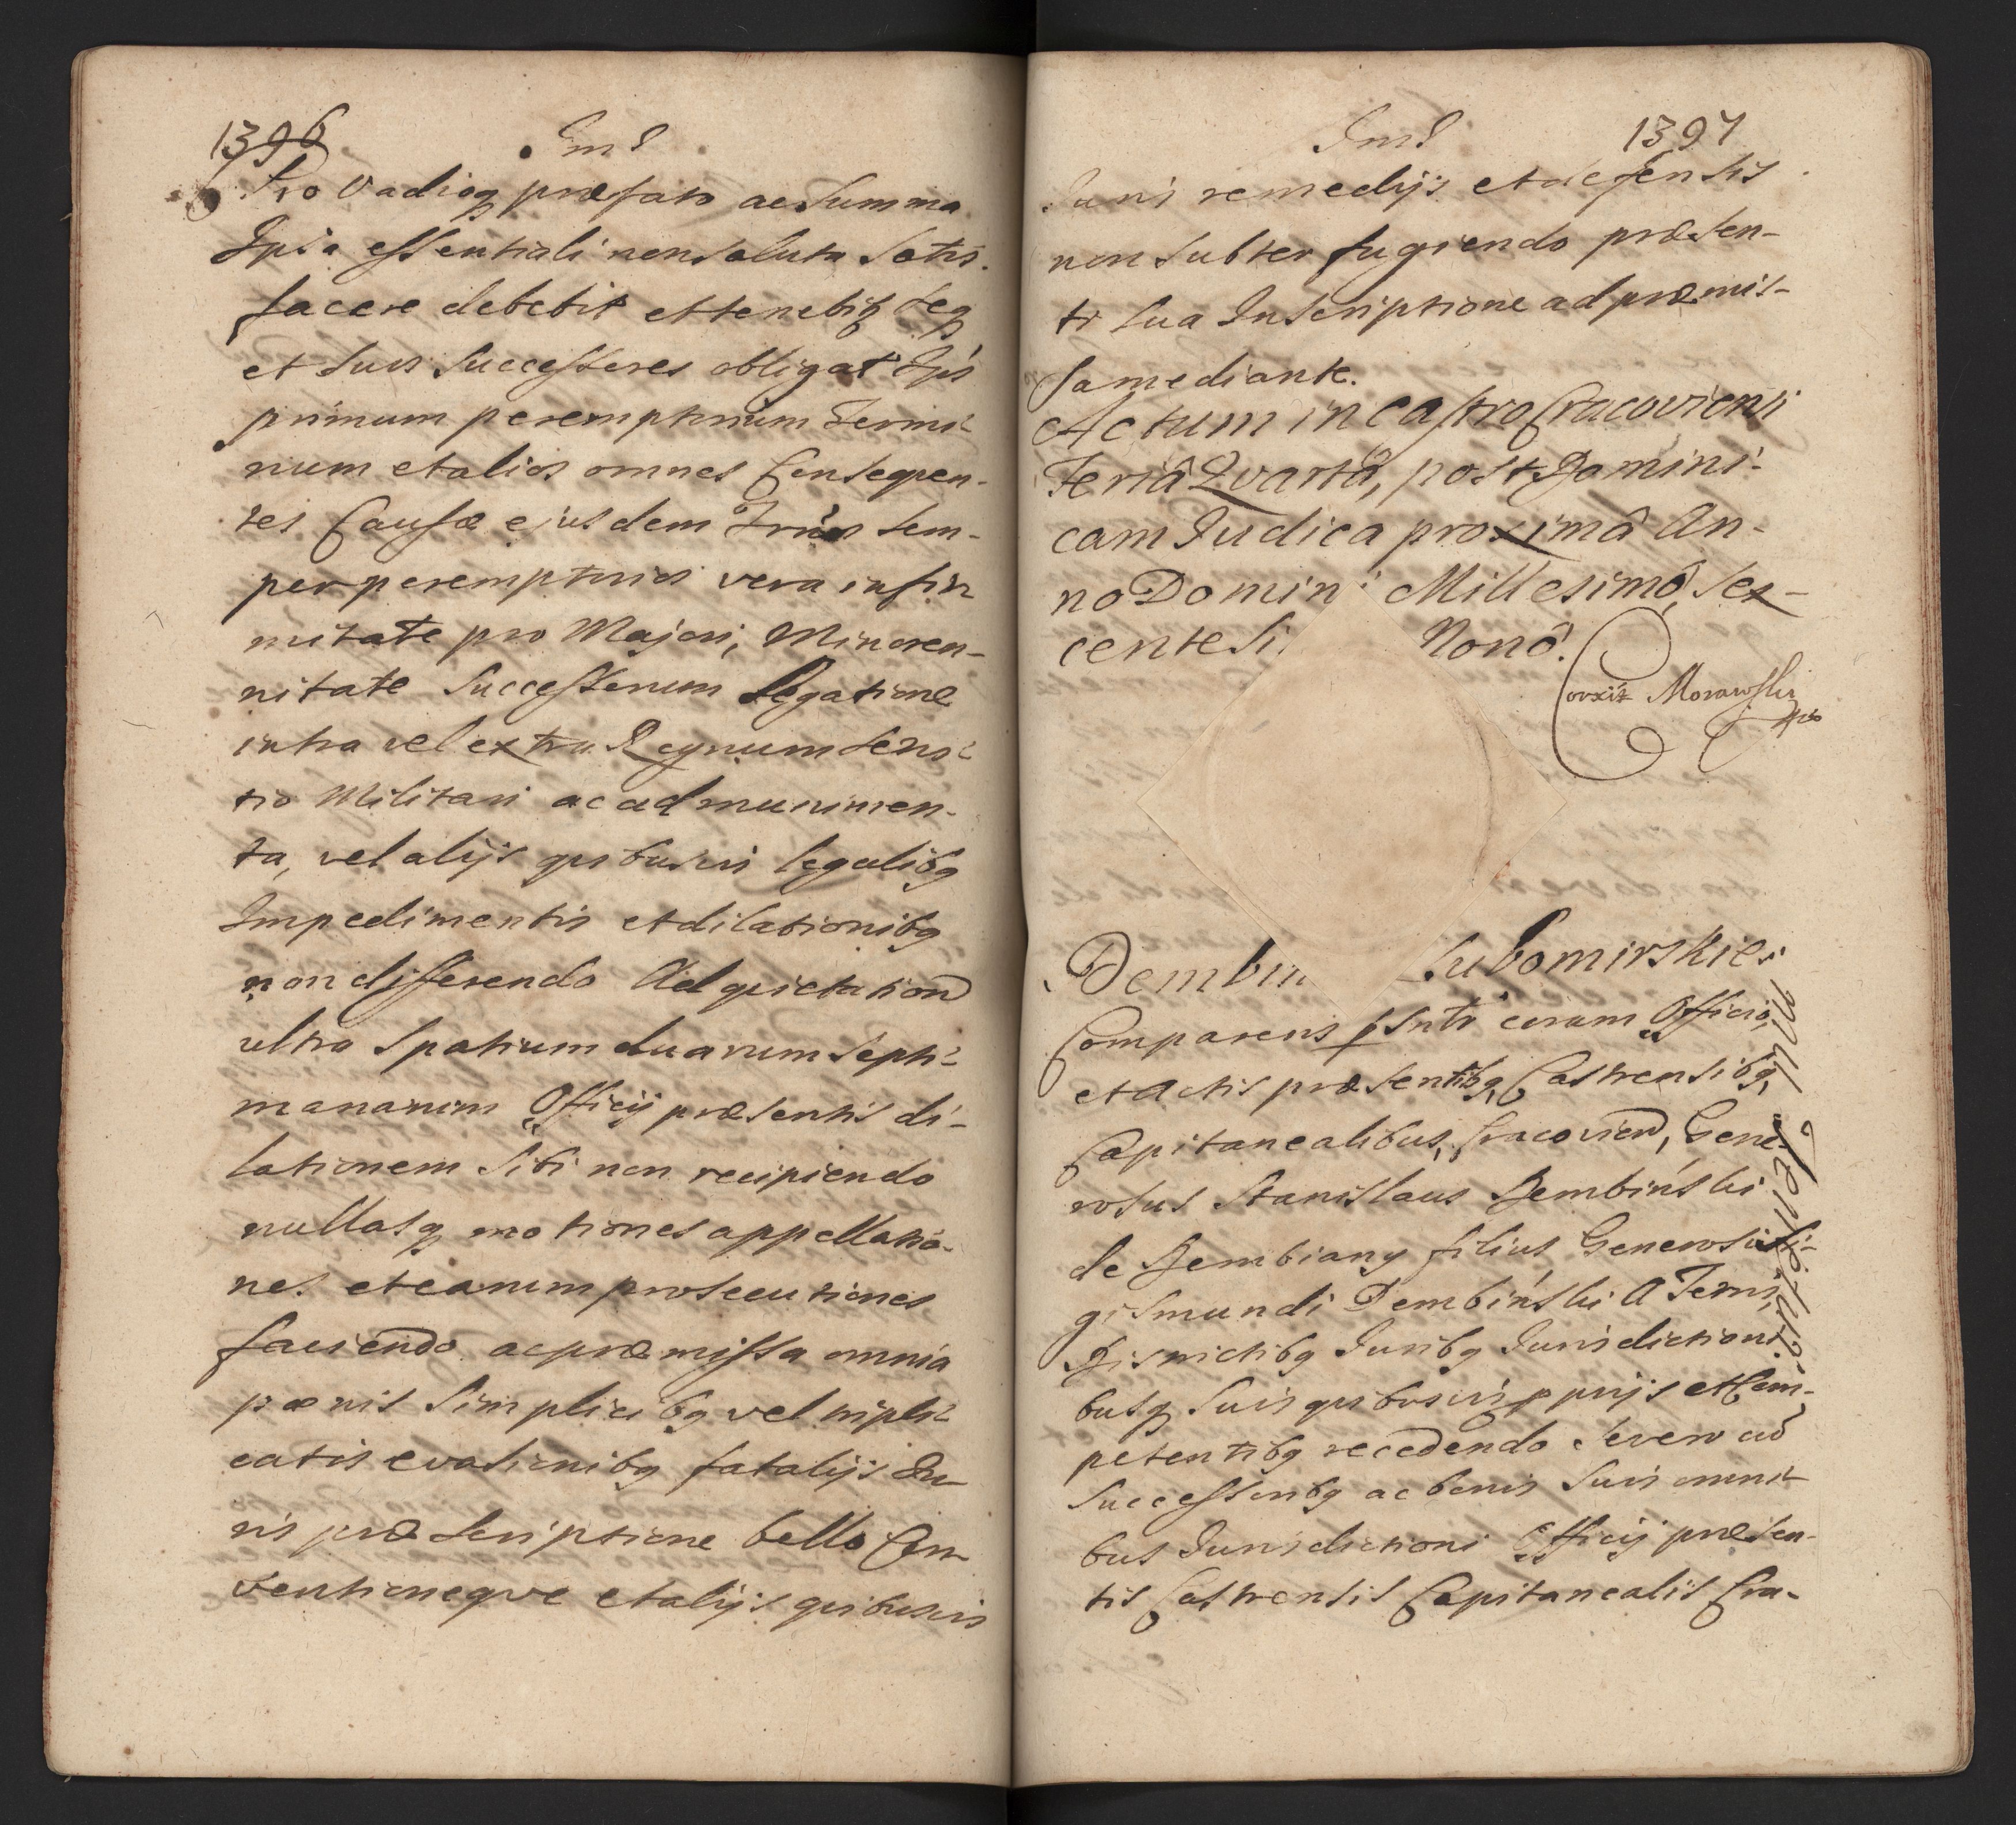 1396
Jms
Pro Vadioq præfato ac Summa
Ipsa essentiali non soluta Satis-
facere debebit et tenebiq Seq
et suos Successores obligat Ipis
primum peremptorium Termi-
num et alios omnes Conseqven-
tes Causæ ejusdem sem-
per peremptorios vera infir
mitate pro Majori, Minoren-
nitate Successorum Legatione
intra vel extra Regnum servi-
tio Militari ac ad munimen-
ta, vel alijs qvibusvis legalibq
Impedimentis et dilationibq
non differendo Ad qvietation
ultra Spatium duarum Septi-
manarum Officij præsentis di-
lationem Sibi non recipiendo
nullasq motiones appellatio-
nes et earum prosecutiones
faciendo ac præmissa omnia
pænis Simplicibq vel tripli-
catis evasionibq fatalijs Ju-
ris præscriptione bello Con-
ventioneqve et alijs qvibusvis
Jms 1397
Juris remedijs et defensis
non subterfugiendo præsen-
ti sua Inscriptione ad præmis-
sa mediante.
Actum in Castro Cracoviensi
Feriâ Qvartâ, post Domini-
cam Judica proximâ An-
no Domini Millesimô, Sex-
centesi Nonô.
Morawski
mp
Dembin Lubomirskie.
Comparens psnti coram Officio,
et Actis præsentibq Castrensibq,
Capitanealibus, Cracovien, Gene-
rosus Stanislaus Dembiński
de Dembiany filius Generosi Si-
gismundi Dembiński A Terris,
Districtibq Juribq Jurisdictioni-
busq Suis qvibusvis pprijs et Com-
petentibq recedendo Severo cũ
Successoribq ac bonis Suis omni-
bus Jurisdictioni Officij præsen-
tis Castrensis Capitanealis Cra-